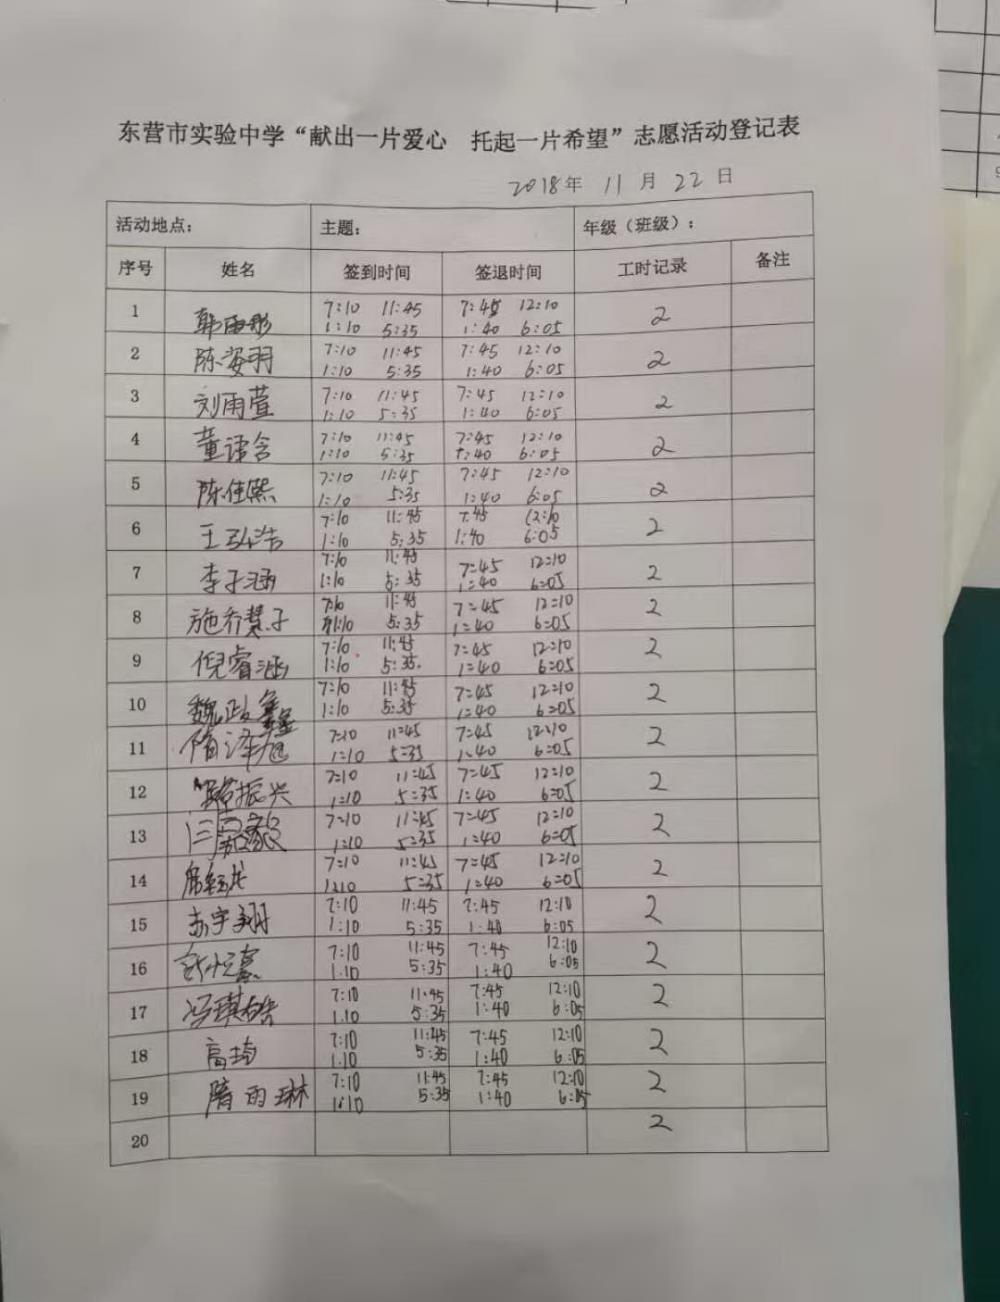 东营市实验中学“献出一片爱心 托起一片希望”志愿活动登记表
2018年 11 月 22 日
活动地点： 主题： 年级（班级）：
序号 姓名 签到时间 签退时间 工时记录 备注
1 韩雨彤 7:10 11:45 7:45 12:10 2
1:10 5:35 1:40 6:05
2 陈姿羽 7:10 11:45 7:45 12:10 2
1:10 5:35 1:40 6:05
3 刘雨萱 7:10 11:45 7:45 12:10 2
1:10 5:35 1:40 6:05
4 董译含 7:10 11:45 7:45 12:10 2
1:10 5:35 1:40 6:05
5 陈佳熙 7:10 11:45 7:45 12:10 2
1:10 5:35 1:40 6:05
6 王弘浩 7:10 11:45 7:45 12:10 2
1:10 5:35 1:40 6:05
7 李子涵 7:10 11:45 7:45 12:10 2
1:10 5:35 1:40 6:05
8 施乔慧子 7:10 11:45 7:45 12:10 2
1:10 5:35 1:40 6:05
9 倪睿涵 7:10 11:45 7:45 12:10 2
1:10 5:35 1:40 6:05
10 魏政鑫 7:10 11:45 7:45 12:10 2
1:10 5:35 1:40 6:05
11 隋泽旭 7:10 11:45 7:45 12:10 2
1:10 5:35 1:40 6:05
12 振兴 7:10 11:45 7:45 12:10 2
1:10 5:35 1:40 6:05
13 7:10 11:45 7:45 12:10 2
1:10 5:35 1:40 6:05
14 7:10 11:45 7:45 12:10 2
1:10 5:35 1:40 6:05
15 苏宇翔 7:10 11:45 7:45 12:10 2
1:10 5:35 1:40 6:05
16 7:10 11:45 7:45 12:10 2
1:10 5:35 1:40 6:05
17 冯琪皓 7:10 11:45 7:45 12:10 2
1:10 5:35 1:40 6:05
18 高 7:10 11:45 7:45 12:10 2
1:10 5:35 1:40 6:05
19 隋雨琳 7:10 11:45 7:45 12:10 2
1:10 5:35 1:40 6:05
20 2